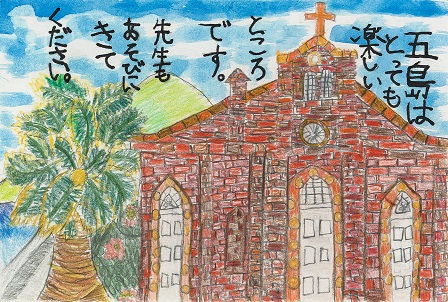 五島は
とっても
楽しい
ところ
です。
先生も
あそびに
きて
ください。